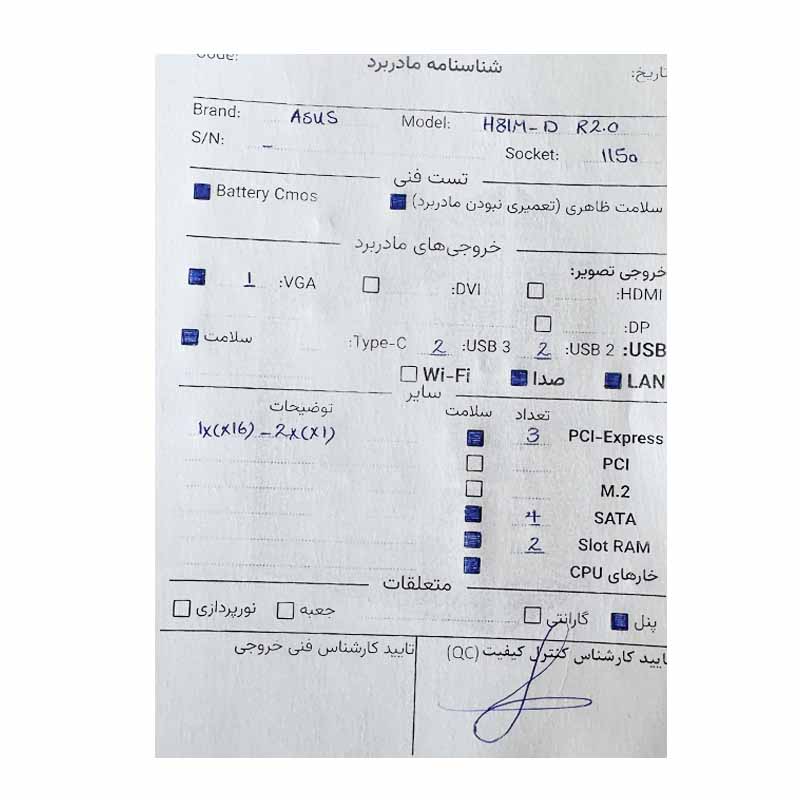 Code:
شناسنامه مادربرد
تاریخ:
Brand: ASUS Model: H81M-D R2.0
S/N: - Socket: 1150
تست فنی
سلامت ظاهری (تعمیری نبودن مادربرد) Battery Cmos
خروجی‌های مادربرد
خروجی تصویر:
HDMI: DVI: VGA: 1
DP:
USB: USB 2: 2 USB 3: 2 Type-C: سلامت
LAN صدا Wi-Fi
سایر
تعداد سلامت توضیحات
PCI-Express 3 1x(x16) - 2x(x1)
PCI
M.2
SATA 4
Slot RAM 2
خارهای CPU
متعلقات
پنل گارانتی جعبه نورپردازی
تایید کارشناس کنترل کیفیت (QC) تایید کارشناس فنی خروجی